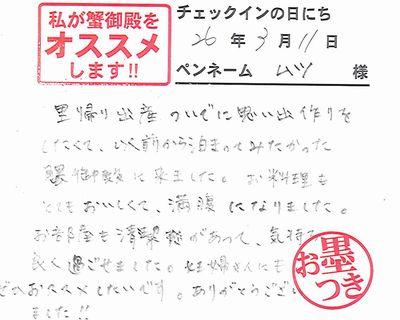 私が蟹御殿を
オススメ
します!!
チェックインの日にち
26年3月11日
ペンネーム ムツ 様
里帰り出産ついでに思い出作りを
したくて、いく前から泊まってみたかった
蟹御殿に来ました。お料理も
とてもおいしくて、満腹になりました。
お部屋も清潔感があって、気持ち
良く過ごせました。妊婦さんにも
ぜひおススメしたいです。ありがとうござい
ました!!
お墨つき